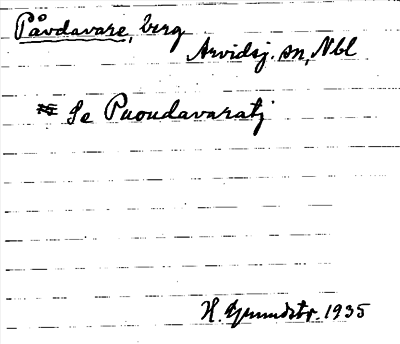 Påvdavare, berg
Arvidsj. sn, Nbl
Se Puoudavaratj
H. Grundstr. 1935